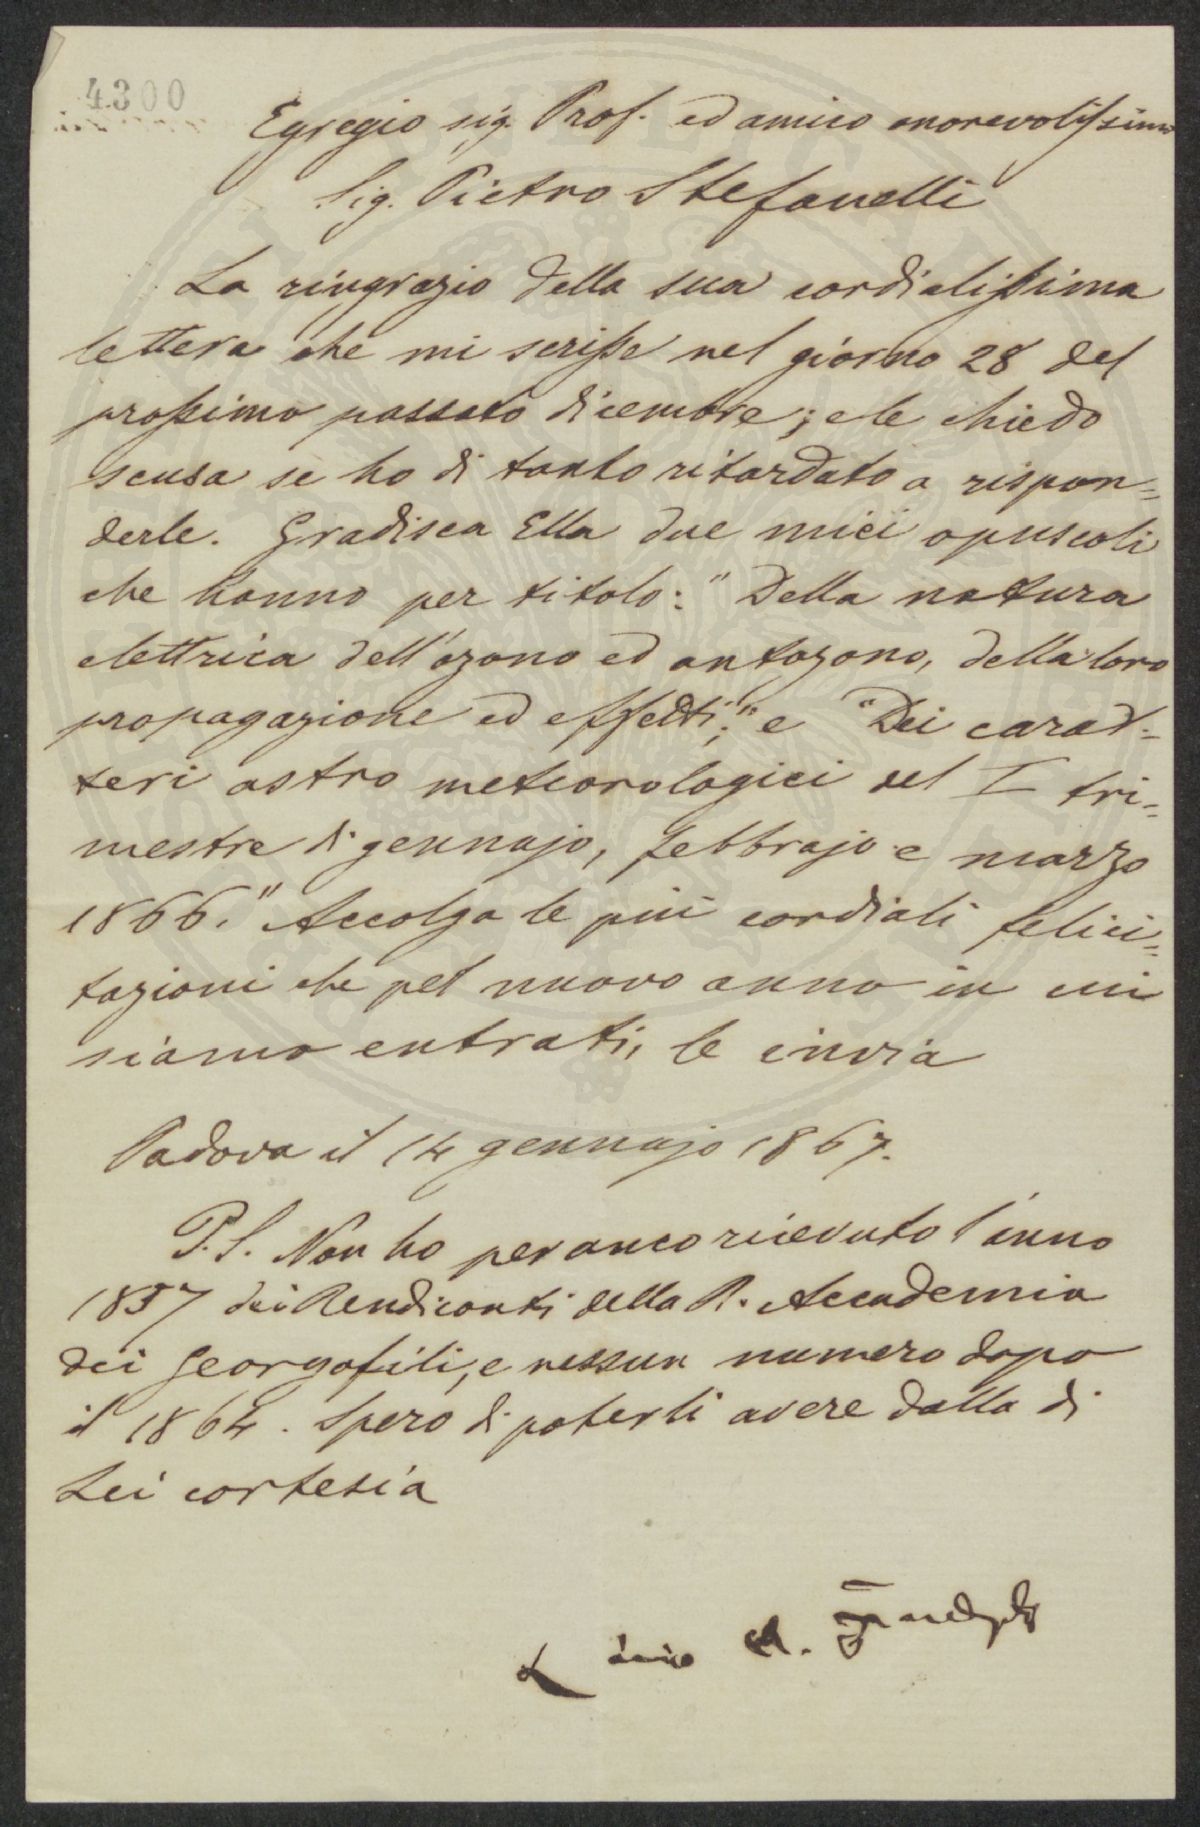 4300
Egregio sig. Prof. ed amico onorevolissimo
Sig. Pietro Stefanelli
La ringrazio della sua cordialissima
lettera che mi scrisse nel giorno 28 del
prossimo passato dicembre; e le chiedo
scusa se ho di tanto ritardato a rispon=
derle. Gradisca Ella due miei opuscoli
che hanno per titolo: "Della natura
elettrica dell'ozono ed antozono, della loro
propagazione ed effetti;" e "Dei carat=
teri astro meteorologici del I tri=
mestre di gennajo, febbrajo e marzo
1866." Accolga le più cordiali felici=
tazioni che pel nuovo anno in cui
siamo entrati, le invia
Padova il 14 gennajo 1867.
P.S. Non ho peranco ricevuto l'anno
1857 dei Rendiconti della R. Accademia
dei Georgofili, e nessun numero dopo
il 1864. Spero di poterli avere dalla di
Lei cortesia